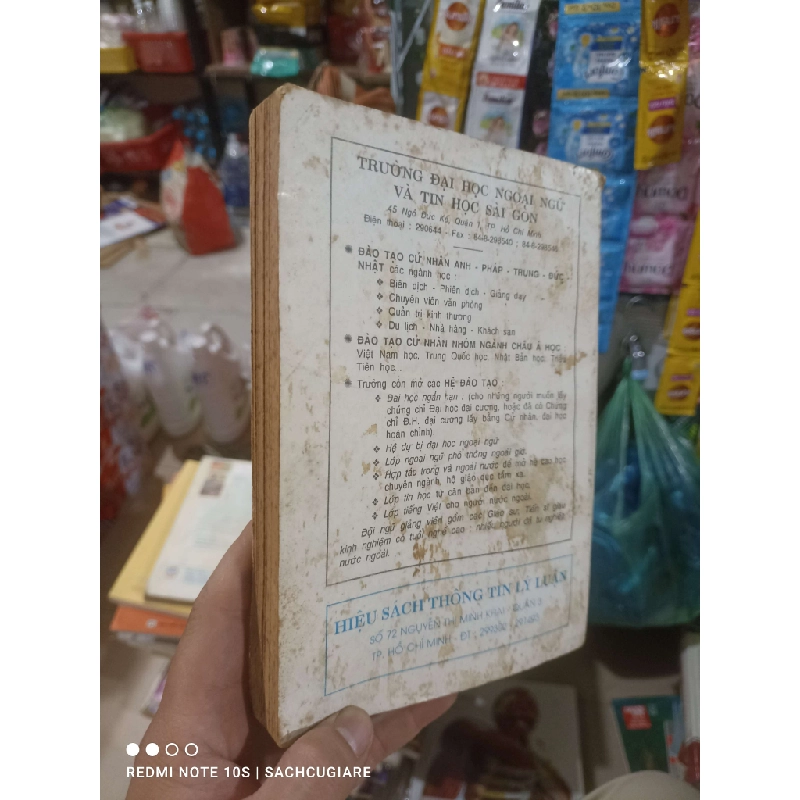 TRƯỜNG ĐẠI HỌC NGOẠI NGỮ
VÀ TIN HỌC SÀI GÒN
45 Ngô Đức Kế, Quận 1, TP. Hồ Chí Minh
Điện thoại : 290644 - Fax : 84-8-298540 ; 84-8-298540
ĐÀO TẠO CỬ NHÂN ANH - PHÁP - TRUNG - ĐỨC
NHẬT các ngành học :
Biên dịch - Phiên dịch - Giảng dạy
Chuyên viên văn phòng
Quản trị kinh thương
Du lịch - Nhà hàng - Khách sạn
ĐÀO TẠO CỬ NHÂN NHÓM NGÀNH CHÂU Á HỌC
Việt Nam học, Trung Quốc học, Nhật Bản học, Triều
Tiên học...
Trường còn mở các HỆ ĐÀO TẠO
Đại học ngắn hạn : (cho những người muốn lấy
chứng chỉ Đại học đại cương, hoặc đã có Chứng
chỉ Đ.H. đại cương lấy bằng Cử nhân, đại học
hoàn chỉnh)
Hệ dự bị đại học ngoại ngữ
Lớp ngoại ngữ phổ thông ngoài giờ.
Hợp tác trong và ngoài nước để mở hệ cao học
chuyên ngành, hệ giáo dục tầm xa.
Lớp tin học từ căn bản đến đại học.
Lớp tiếng Việt cho người nước ngoài.
Đội ngũ giảng viên gồm các Giáo sư, Tiến sĩ giàu
kinh nghiệm có tuổi nghề cao ; nhiều người đã tu nghiệp
nước ngoài.
HIỆU SÁCH THÔNG TIN LÝ LUẬN
SỐ 72 NGUYỄN THỊ MINH KHAI - QUẬN 3
TP. HỒ CHÍ MINH - ĐT :
REDMI NOTE 10S | SACHCUGIARE